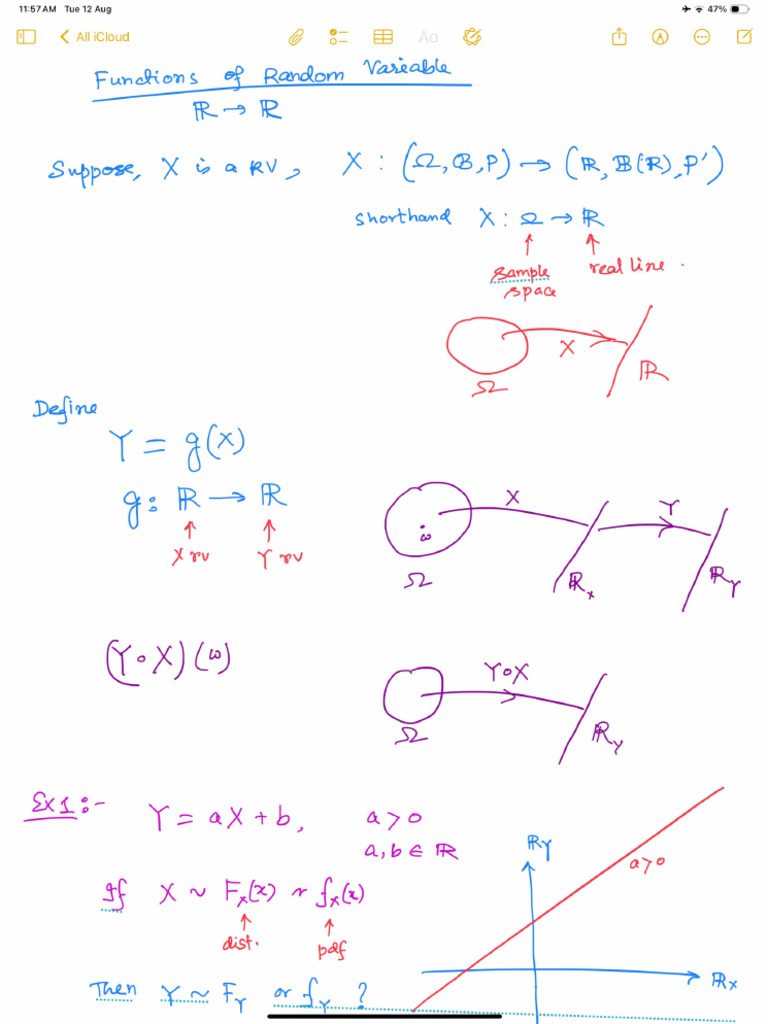 11:57 AM Tue 12 Aug
47%
All iCloud
Aa
Functions of Random Variable
ℝ → ℝ
Suppose, X is a RV, X : (Ω, B, P) → (ℝ, B(ℝ), P')
shorthand X : Ω → ℝ
sample space
real line.
X
Ω
ℝ
Define
Y = g(X)
g: ℝ → ℝ
X rv
Y rv
X
Y
ω
Ω
ℝx
ℝY
(Y∘X)(ω)
Y∘X
Ω
ℝY
Ex1:-
Y = aX + b, a > 0
a, b ∈ ℝ
If X ~ Fx(x) or fx(x)
dist.
pdf
Then Y ~ FY or fY ?
ℝY
a>0
ℝx